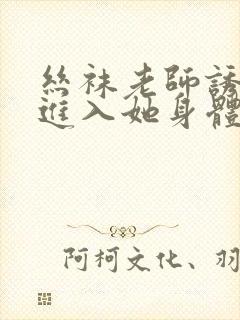 絲袜老師誘
進入她身體
阿柯文化、羽